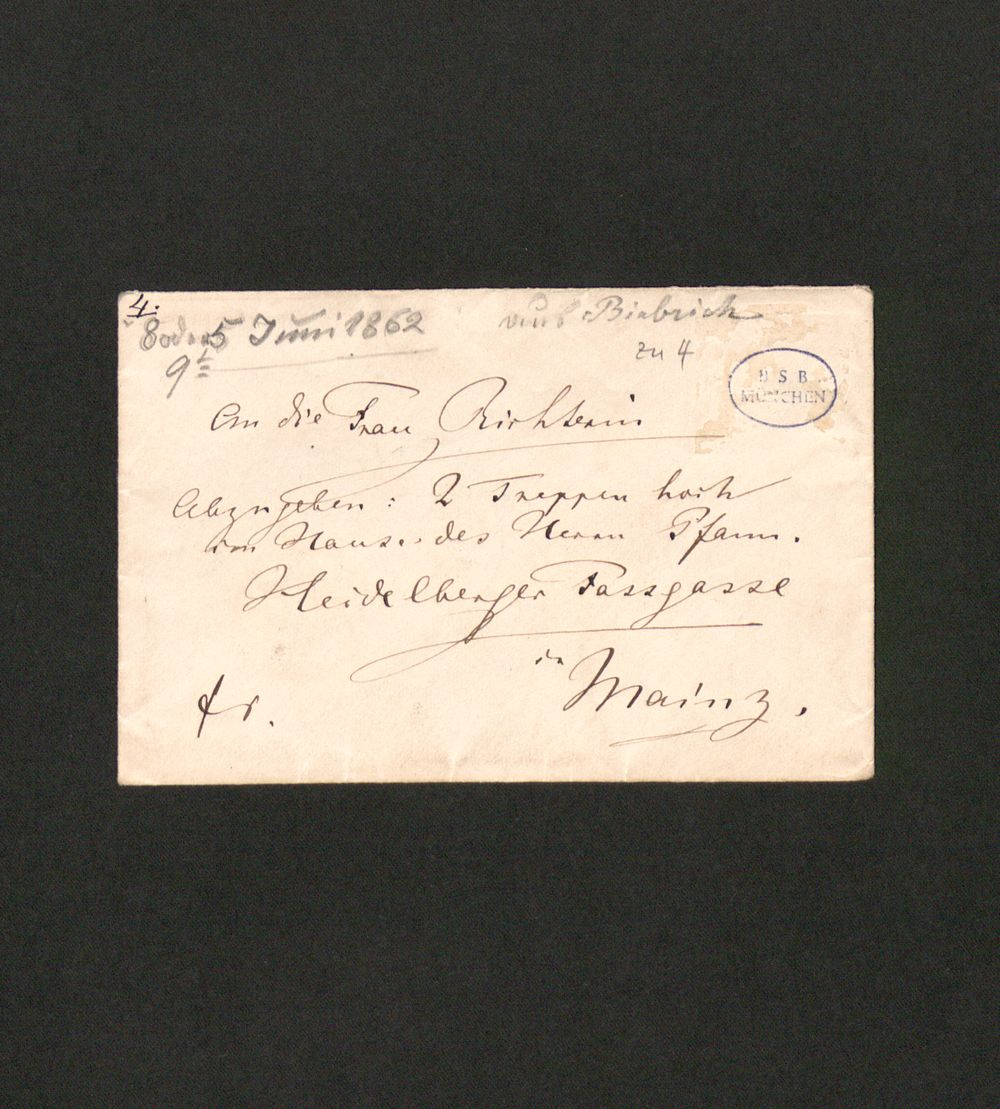 4.
8 oder 5 Juni 1862
9t
aus Biebrich
zu 4
BSB
MÜNCHEN
An die Frau Richterin
Abzugeben: 2 Treppen hoch
im Hause des Herrn Pfann.
Heidelberger Fassgasse
in Mainz.
fr.